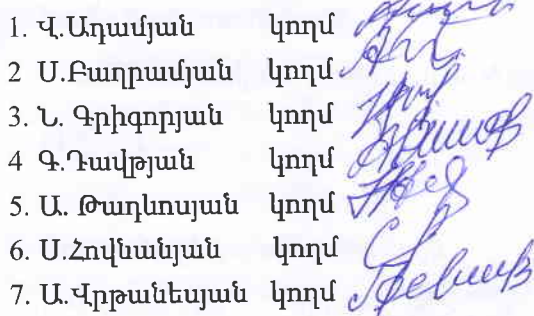 1. Վ.Ադամյան կողմ
2 Ս.Բաղրամյան կողմ
3. Ն. Գրիգորյան կողմ
4 Գ.Դավթյան կողմ
5. Ա. Թադևոսյան կողմ
6. Ս.Հովնանյան կողմ
7. Ա.Վրթանեսյան կողմ